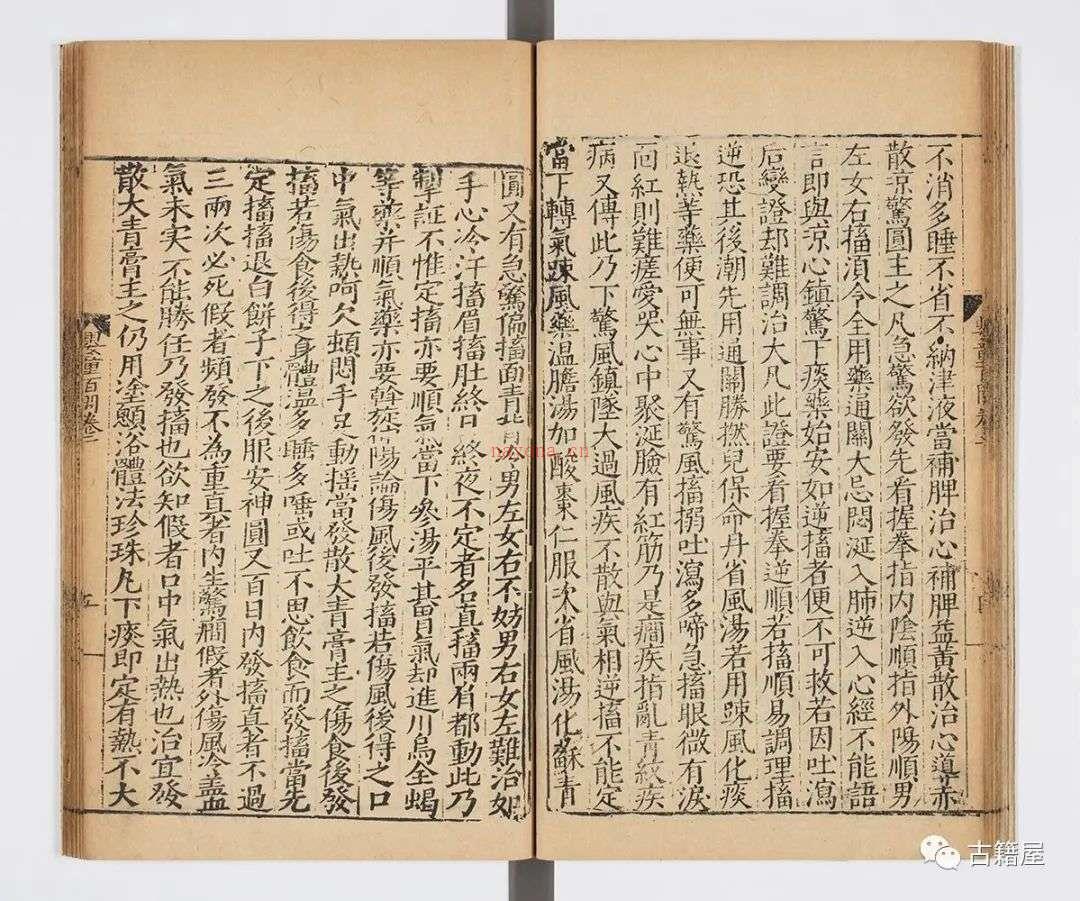 不消多睡不省不納津液當補脾治心補脾益黃散治心道赤
散凉驚圓主之凡急驚欲發先看握拳指内陰順指外陽順男
左女右搐湏令全用藥通關大忌悶涎入肺逆入心經不能語
言即與凉心鎮驚下痰藥始安如逆搐者便不可救若因吐瀉
后變證却難調治大凡此證要看握拳逆順若搐順易調理搐
逆恐其後潮先用通關勝撫兒保命丹省風湯若用踈風化痰
退熱等藥便可無事又有驚風搐搦吐瀉多啼急搐眼微有淚
面紅則難瘥愛哭心中聚涎臉有紅筋乃是癎疾指亂青紋疾
病又傳此乃下驚風鎮墜大過風疾不散與氣相逆搐不能定
當下轉氣踈風藥温膽湯加酸棗仁服次省風湯化蘇青
圓又有急驚偏搐面青男左女右不妨男右女左難治如
手心冷汗搐眉搐肚終日終夜不定者名真搐兩肩都動此乃
掣証不惟定搐亦要順氣當下參湯平胃氣却進川烏全蝎
等藥并順氣藥亦要斡旋陰陽論傷風後發搐若傷風後得之口
中氣出熱呵欠頓悶手足動摇當發散大青膏主之傷食後發
搐若傷食後得之身體温多睡多唾或吐不思飲食而發搐當先
定搐搐退白餅子下之後服安神圓又百日内發搐真者不過
三兩次必死假者頻發不為重真者内生驚癎假者外傷風冷血
氣未实不能勝任乃發搐也欲知假者口中氣出熱也治宜發
散大青膏主之仍用塗顖浴體法珍珠凡下痰即定有熱不大
嬰童百問卷二
五
naxoua.cn
古籍屋